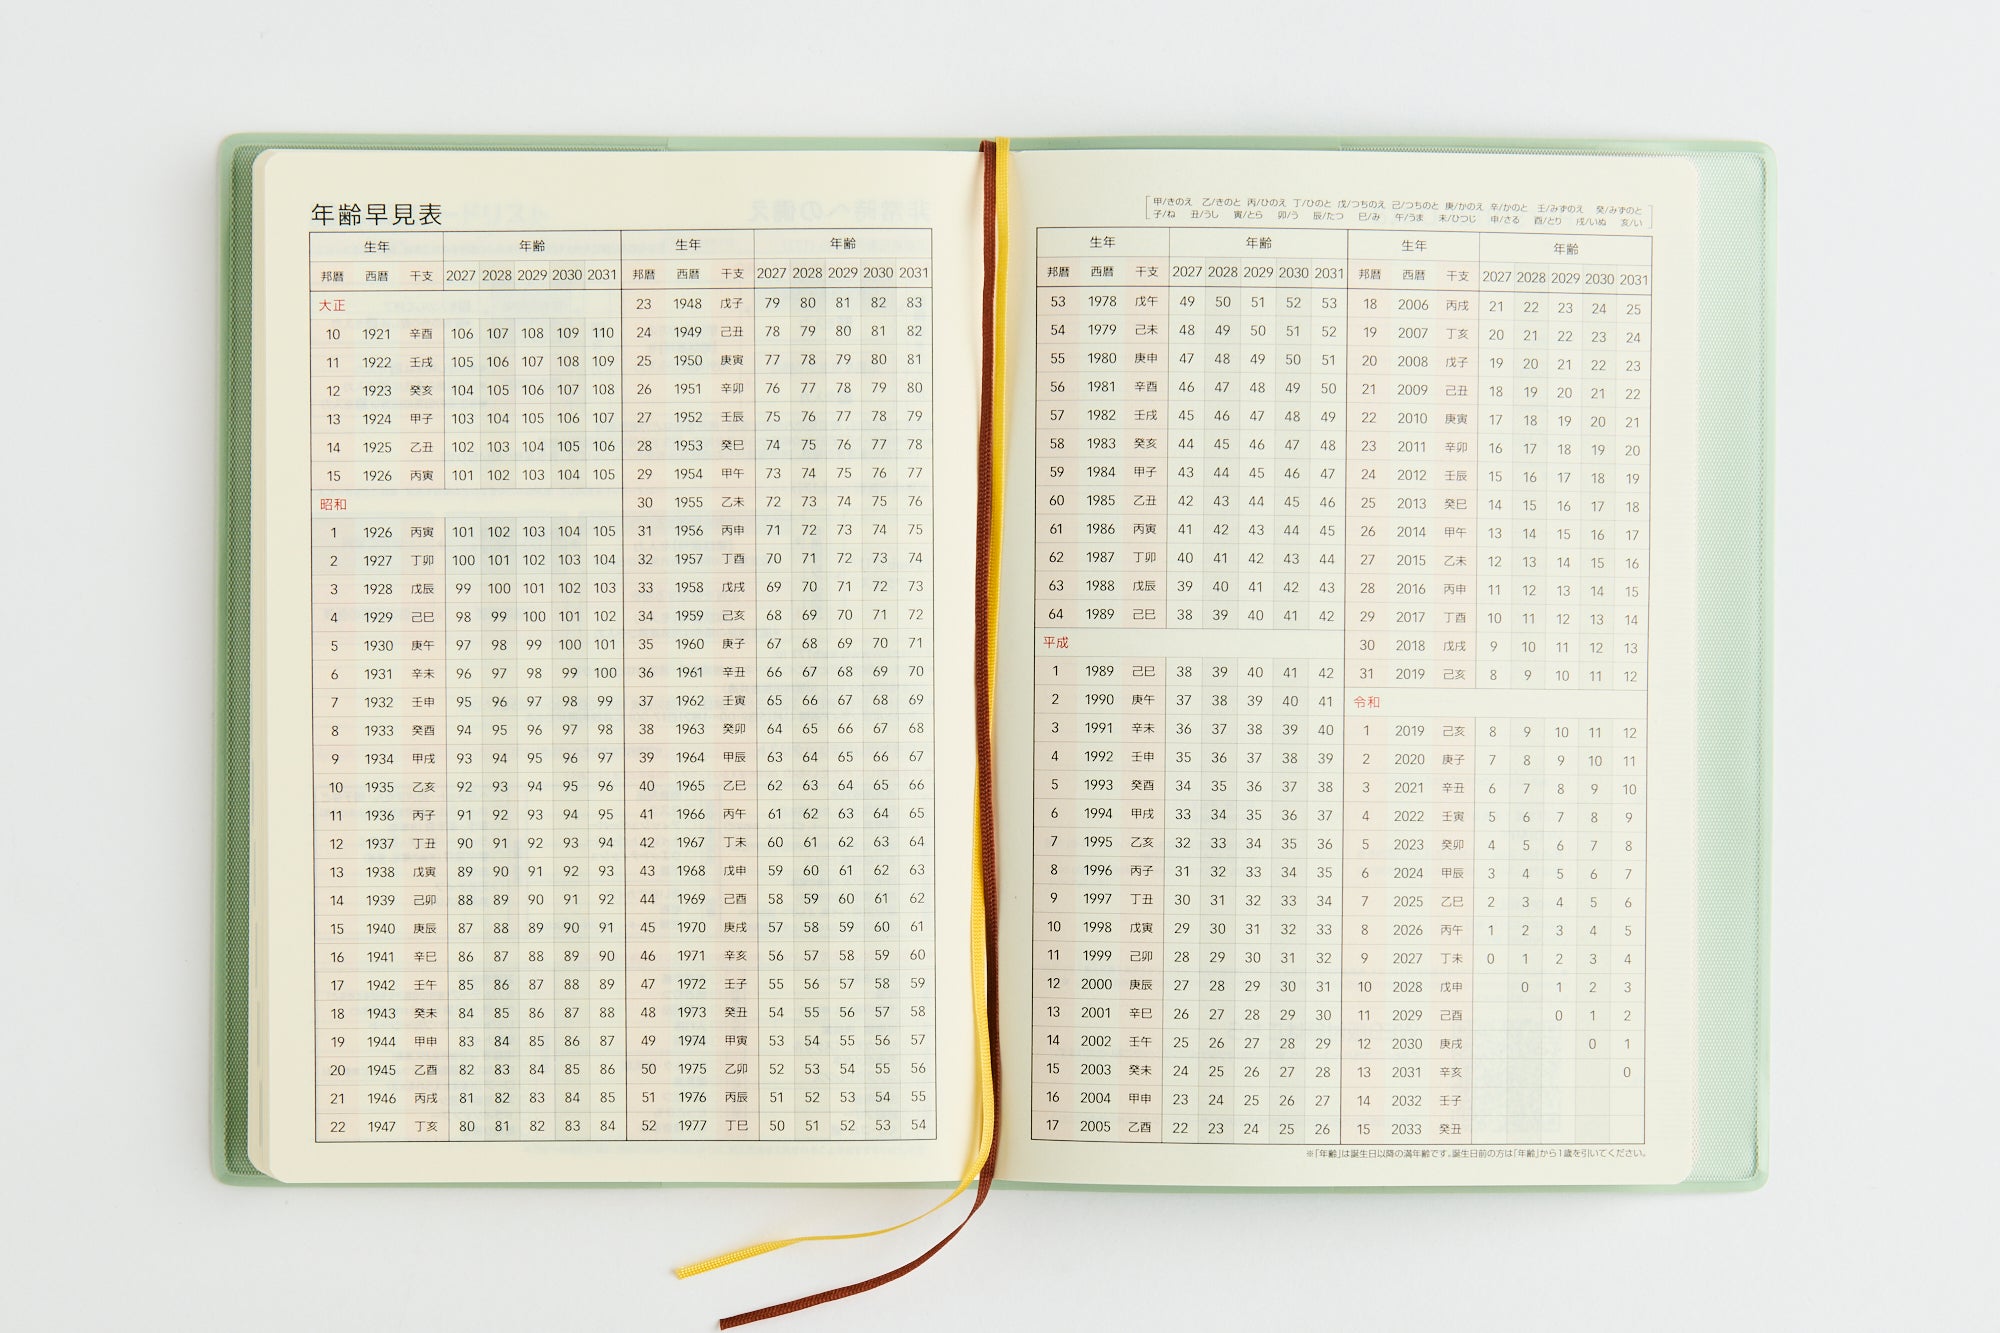 年齢早見表
生年 年齢
邦暦 西暦 干支 2027 2028 2029 2030 2031
大正
10 1921 辛酉 106 107 108 109 110
11 1922 壬戌 105 106 107 108 109
12 1923 癸亥 104 105 106 107 108
13 1924 甲子 103 104 105 106 107
14 1925 乙丑 102 103 104 105 106
15 1926 丙寅 101 102 103 104 105
昭和
1 1926 丙寅 101 102 103 104 105
2 1927 丁卯 100 101 102 103 104
3 1928 戊辰 99 100 101 102 103
4 1929 己巳 98 99 100 101 102
5 1930 庚午 97 98 99 100 101
6 1931 辛未 96 97 98 99 100
7 1932 壬申 95 96 97 98 99
8 1933 癸酉 94 95 96 97 98
9 1934 甲戌 93 94 95 96 97
10 1935 乙亥 92 93 94 95 96
11 1936 丙子 91 92 93 94 95
12 1937 丁丑 90 91 92 93 94
13 1938 戊寅 89 90 91 92 93
14 1939 己卯 88 89 90 91 92
15 1940 庚辰 87 88 89 90 91
16 1941 辛巳 86 87 88 89 90
17 1942 壬午 85 86 87 88 89
18 1943 癸未 84 85 86 87 88
19 1944 甲申 83 84 85 86 87
20 1945 乙酉 82 83 84 85 86
21 1946 丙戌 81 82 83 84 85
22 1947 丁亥 80 81 82 83 84
生年 年齢
邦暦 西暦 干支 2027 2028 2029 2030 2031
23 1948 戊子 79 80 81 82 83
24 1949 己丑 78 79 80 81 82
25 1950 庚寅 77 78 79 80 81
26 1951 辛卯 76 77 78 79 80
27 1952 壬辰 75 76 77 78 79
28 1953 癸巳 74 75 76 77 78
29 1954 甲午 73 74 75 76 77
30 1955 乙未 72 73 74 75 76
31 1956 丙申 71 72 73 74 75
32 1957 丁酉 70 71 72 73 74
33 1958 戊戌 69 70 71 72 73
34 1959 己亥 68 69 70 71 72
35 1960 庚子 67 68 69 70 71
36 1961 辛丑 66 67 68 69 70
37 1962 壬寅 65 66 67 68 69
38 1963 癸卯 64 65 66 67 68
39 1964 甲辰 63 64 65 66 67
40 1965 乙巳 62 63 64 65 66
41 1966 丙午 61 62 63 64 65
42 1967 丁未 60 61 62 63 64
43 1968 戊申 59 60 61 62 63
44 1969 己酉 58 59 60 61 62
45 1970 庚戌 57 58 59 60 61
46 1971 辛亥 56 57 58 59 60
47 1972 壬子 55 56 57 58 59
48 1973 癸丑 54 55 56 57 58
49 1974 甲寅 53 54 55 56 57
50 1975 乙卯 52 53 54 55 56
51 1976 丙辰 51 52 53 54 55
52 1977 丁巳 50 51 52 53 54
甲/きのえ 乙/きのと 丙/ひのえ 丁/ひのと 戊/つちのえ 己/つちのと 庚/かのえ 辛/かのと 壬/みずのえ 癸/みずのと
子/ね 丑/うし 寅/とら 卯/う 辰/たつ 巳/み 午/うま 未/ひつじ 申/さる 酉/とり 戌/いぬ 亥/い
生年 年齢
邦暦 西暦 干支 2027 2028 2029 2030 2031
53 1978 戊午 49 50 51 52 53
54 1979 己未 48 49 50 51 52
55 1980 庚申 47 48 49 50 51
56 1981 辛酉 46 47 48 49 50
57 1982 壬戌 45 46 47 48 49
58 1983 癸亥 44 45 46 47 48
59 1984 甲子 43 44 45 46 47
60 1985 乙丑 42 43 44 45 46
61 1986 丙寅 41 42 43 44 45
62 1987 丁卯 40 41 42 43 44
63 1988 戊辰 39 40 41 42 43
64 1989 己巳 38 39 40 41 42
平成
1 1989 己巳 38 39 40 41 42
2 1990 庚午 37 38 39 40 41
3 1991 辛未 36 37 38 39 40
4 1992 壬申 35 36 37 38 39
5 1993 癸酉 34 35 36 37 38
6 1994 甲戌 33 34 35 36 37
7 1995 乙亥 32 33 34 35 36
8 1996 丙子 31 32 33 34 35
9 1997 丁丑 30 31 32 33 34
10 1998 戊寅 29 30 31 32 33
11 1999 己卯 28 29 30 31 32
12 2000 庚辰 27 28 29 30 31
13 2001 辛巳 26 27 28 29 30
14 2002 壬午 25 26 27 28 29
15 2003 癸未 24 25 26 27 28
16 2004 甲申 23 24 25 26 27
17 2005 乙酉 22 23 24 25 26
生年 年齢
邦暦 西暦 干支 2027 2028 2029 2030 2031
18 2006 丙戌 21 22 23 24 25
19 2007 丁亥 20 21 22 23 24
20 2008 戊子 19 20 21 22 23
21 2009 己丑 18 19 20 21 22
22 2010 庚寅 17 18 19 20 21
23 2011 辛卯 16 17 18 19 20
24 2012 壬辰 15 16 17 18 19
25 2013 癸巳 14 15 16 17 18
26 2014 甲午 13 14 15 16 17
27 2015 乙未 12 13 14 15 16
28 2016 丙申 11 12 13 14 15
29 2017 丁酉 10 11 12 13 14
30 2018 戊戌 9 10 11 12 13
31 2019 己亥 8 9 10 11 12
令和
1 2019 己亥 8 9 10 11 12
2 2020 庚子 7 8 9 10 11
3 2021 辛丑 6 7 8 9 10
4 2022 壬寅 5 6 7 8 9
5 2023 癸卯 4 5 6 7 8
6 2024 甲辰 3 4 5 6 7
7 2025 乙巳 2 3 4 5 6
8 2026 丙午 1 2 3 4 5
9 2027 丁未 0 1 2 3 4
10 2028 戊申 0 1 2 3
11 2029 己酉 0 1 2
12 2030 庚戌 0 1
13 2031 辛亥 0
14 2032 壬子
15 2033 癸丑
※「年齢」は誕生日以降の満年齢です。誕生日前の方は「年齢」から1歳を引いてください。